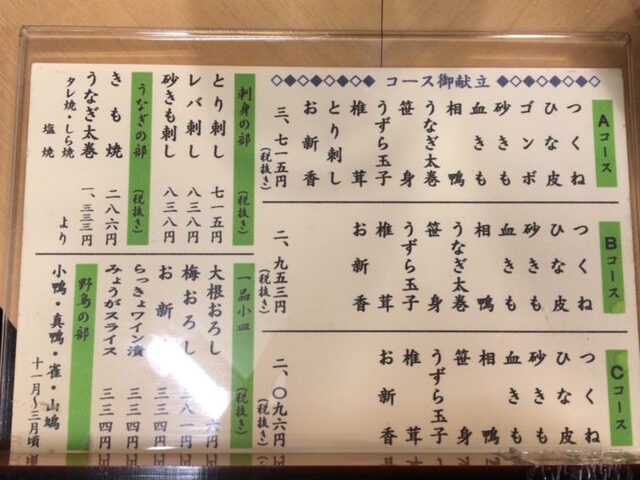 コース御献立
Aコース
つくね
ひな皮
ゴンボ
砂きも
血きも
相鴨
うなぎ太巻
笹身
うずら玉子
椎茸
とり刺し
お新香
三、七一五円
(税抜き)
Bコース
つくね
ひな皮
砂きも
血きも
相鴨
うなぎ太巻
笹身
うずら玉子
椎茸
お新香
二、九五三円
(税抜き)
Cコース
つくね
ひな皮
砂きも
血きも
相鴨
笹身
うずら玉子
椎茸
お新香
二、〇九六円
(税抜き)
刺身の部 (税抜き)
とり刺し 七一五円
レバ刺し 八三八円
砂きも刺し 八三八円
うなぎの部 (税抜き)
きも焼 二八六円
うなぎ太巻 一、三三三円
タレ焼・しら焼 より
塩焼
一品小皿 (税抜き)
大根おろし
梅おろし 八一
お新 三三四円
らっきょワイン漬 三三四円
みょうがスライス 三三四円
野鳥の部
小鴨・真鴨・雀・山鳩
十一月～三月頃